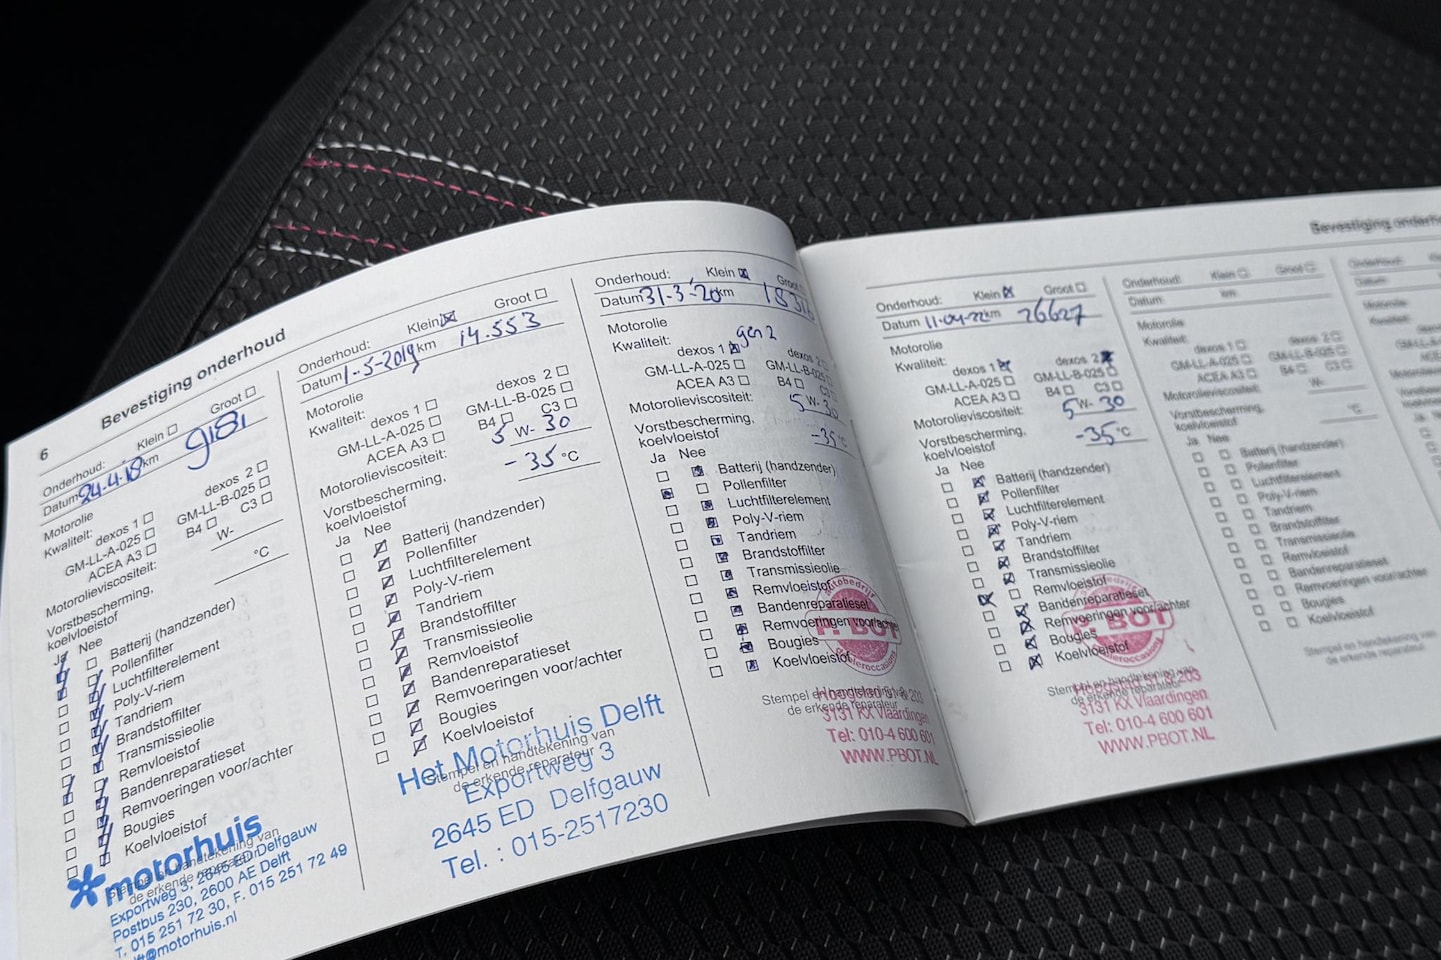 6
Bevestiging onderhoud
Onderhoud: Klein Groot
Datum 24.4.'18 km 9181
Motorolie
Kwaliteit: dexos 1 dexos 2
GM-LL-A-025 GM-LL-B-025
ACEA A3 B4 C3
Motorolieviscositeit: W-
Vorstbescherming,
koelvloeistof °C
Ja Nee
Batterij (handzender)
Pollenfilter
Luchtfilterelement
Poly-V-riem
Tandriem
Brandstoffilter
Transmissieolie
Remvloeistof
Bandenreparatieset
Remvoeringen voor/achter
Bougies
Koelvloeistof
Stempel en handtekening van
de erkende reparateur
motorhuis
Exportweg 3, 2645 ED Delfgauw
Postbus 230, 2600 AE Delft
T. 015 251 72 30, F. 015 251 72 49
ft@motorhuis.nl
Onderhoud: Klein Groot
Datum 1-5-2019 km 14.553
Motorolie
Kwaliteit: dexos 1 dexos 2
GM-LL-A-025 GM-LL-B-025
ACEA A3 B4 C3
Motorolieviscositeit: 5 W- 30
Vorstbescherming,
koelvloeistof -35 °C
Ja Nee
Batterij (handzender)
Pollenfilter
Luchtfilterelement
Poly-V-riem
Tandriem
Brandstoffilter
Transmissieolie
Remvloeistof
Bandenreparatieset
Remvoeringen voor/achter
Bougies
Koelvloeistof
Stempel en handtekening van
de erkende reparateur
Het Motorhuis Delft
Exportweg 3
2645 ED Delfgauw
Tel. : 015-2517230
Onderhoud: Klein Groot
Datum 31-3-'20 km
Motorolie
Kwaliteit: gen 2
dexos 1 dexos 2
GM-LL-A-025 GM-LL-B-025
ACEA A3 B4 C3
Motorolieviscositeit: 5 W- 30
Vorstbescherming,
koelvloeistof -35 °C
Ja Nee
Batterij (handzender)
Pollenfilter
Luchtfilterelement
Poly-V-riem
Tandriem
Brandstoffilter
Transmissieolie
Remvloeistof
Bandenreparatieset
Remvoeringen voor/achter
Bougies
Koelvloeistof
P. BOT
Stempel en handtekening van
de erkende reparateur
3131 KX Vlaardingen
Tel: 010-4 600 601
WWW.PBOT.NL
Bevestiging onderho
Onderhoud: Klein Groot
Datum 11-04-22 km 26627
Motorolie
Kwaliteit: dexos 1 dexos 2
GM-LL-A-025 GM-LL-B-025
ACEA A3 B4 C3
Motorolieviscositeit: 5 W- 30
Vorstbescherming,
koelvloeistof -35 °C
Ja Nee
Batterij (handzender)
Pollenfilter
Luchtfilterelement
Poly-V-riem
Tandriem
Brandstoffilter
Transmissieolie
Remvloeistof
Bandenreparatieset
Remvoeringen voor/achter
Bougies
Koelvloeistof
P. BOT
Stempel en handtekening van
de erkende reparateur
3131 KX Vlaardingen
Tel: 010-4 600 601
WWW.PBOT.NL
Onderhoud: Klein Groot
Datum km
Motorolie
Kwaliteit: dexos 1 dexos 2
GM-LL-A-025 GM-LL-B-025
ACEA A3 B4 C3
Motorolieviscositeit: W-
Vorstbescherming,
koelvloeistof °C
Ja Nee
Batterij (handzender)
Pollenfilter
Luchtfilterelement
Poly-V-riem
Tandriem
Brandstoffilter
Transmissieolie
Remvloeistof
Bandenreparatieset
Remvoeringen voor/achter
Bougies
Koelvloeistof
Stempel en handtekening van
de erkende reparateur